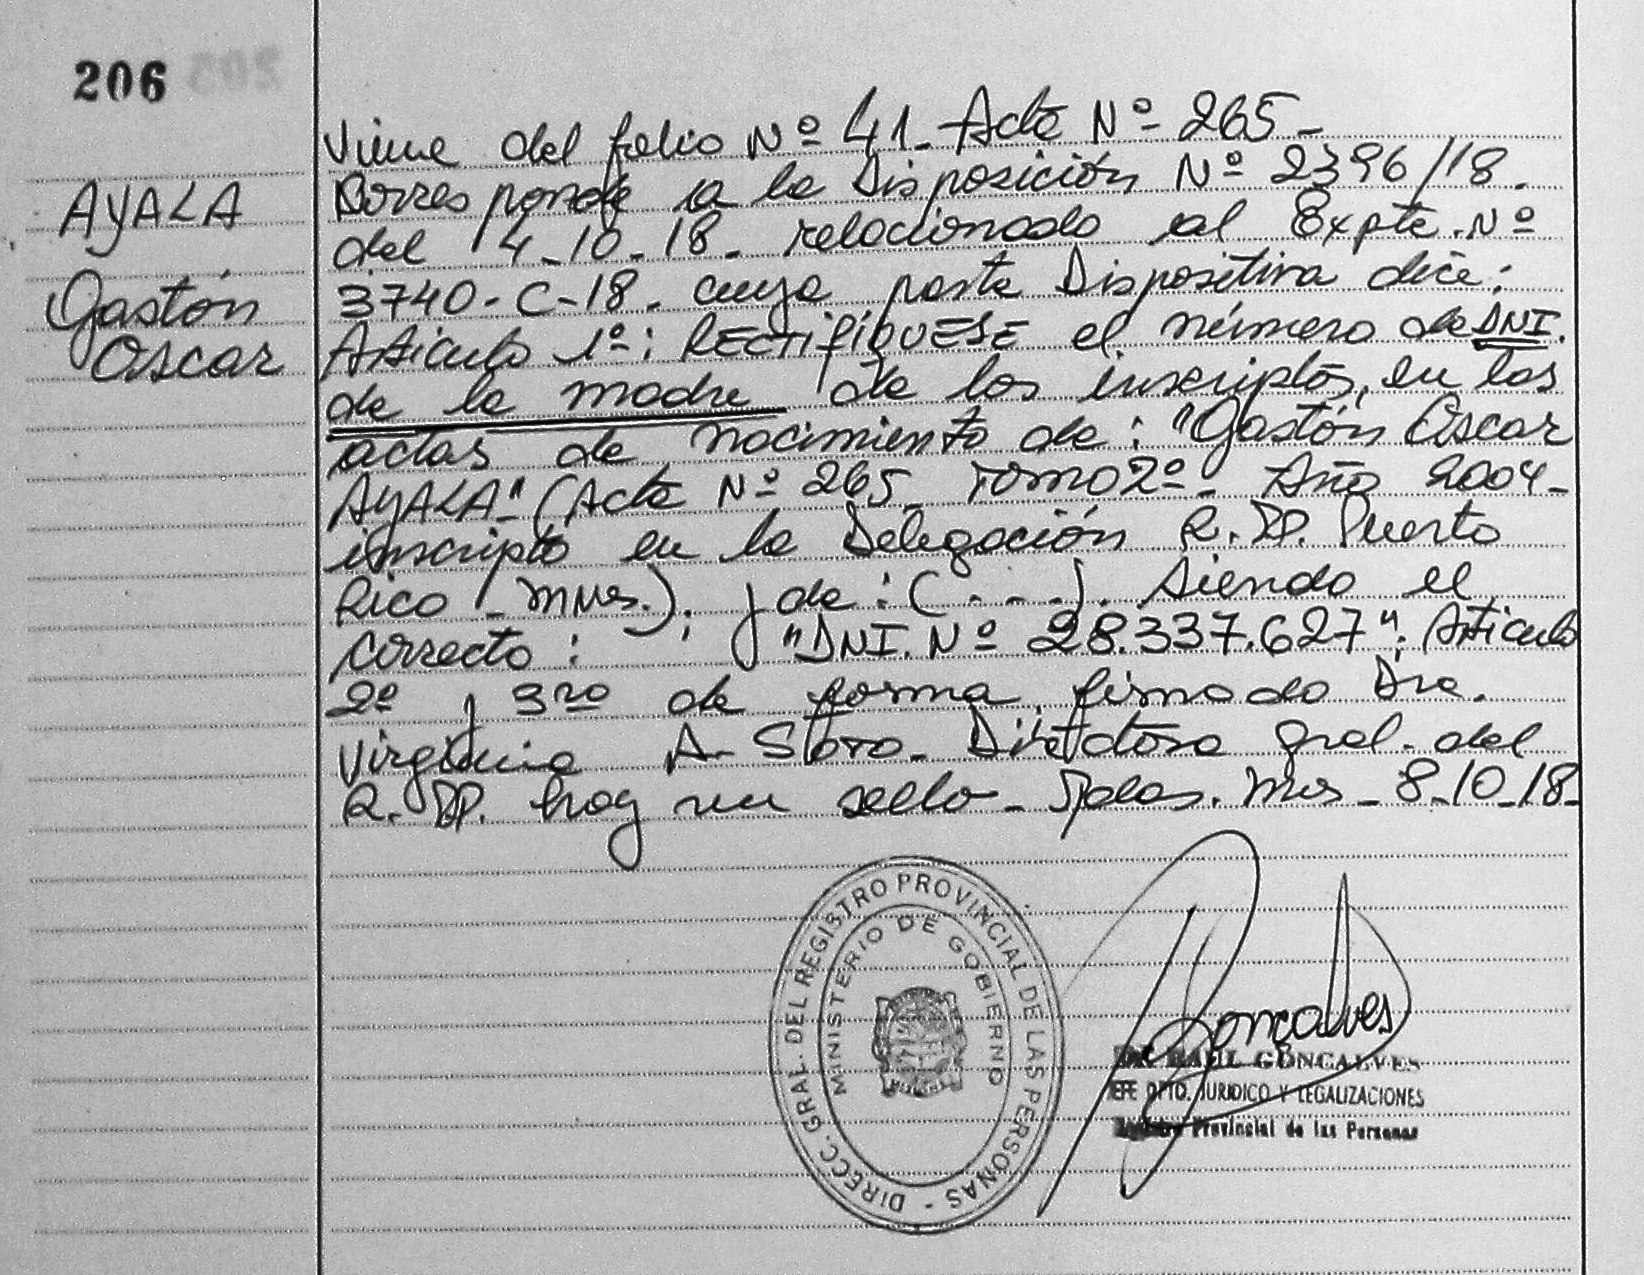 206
AYALA
Gastón
Oscar
Viene del folio Nº 41_ Acta Nº 265_
Corresponde a la Disposición Nº 2396/18.
del 4_10_18_ relacionado al Expte. Nº
3740-C-18. cuya parte Dispositiva dice:
Artículo 1º: RECTIFÍQUESE el número de DNI.
de la madre de los inscriptos, en las
actas de nacimiento de: "Gastón Oscar
AYALA" (Acta Nº 265_ Tomo 2º_ Año 2004_
inscripto en la Delegación R.PP. Puerto
Rico _ Mnes.); y de: (. - -). siendo el
correcto: "DNI. Nº 28.337.627"; Artículo
2º y 3ro de forma, firmado Dra.
Virginia A. Soto_ Directora Gral. del
R.PP. hay un sello_ Pdas. Mns _ 8_10_18_
DIRECC. GRAL. DEL REGISTRO PROVINCIAL DE LAS PERSONAS -
MINISTERIO DE GOBIERNO
Goncalves
RAUL GONCALVES
JEFE DPTO. JURIDICO Y LEGALIZACIONES
Registro Provincial de las Personas